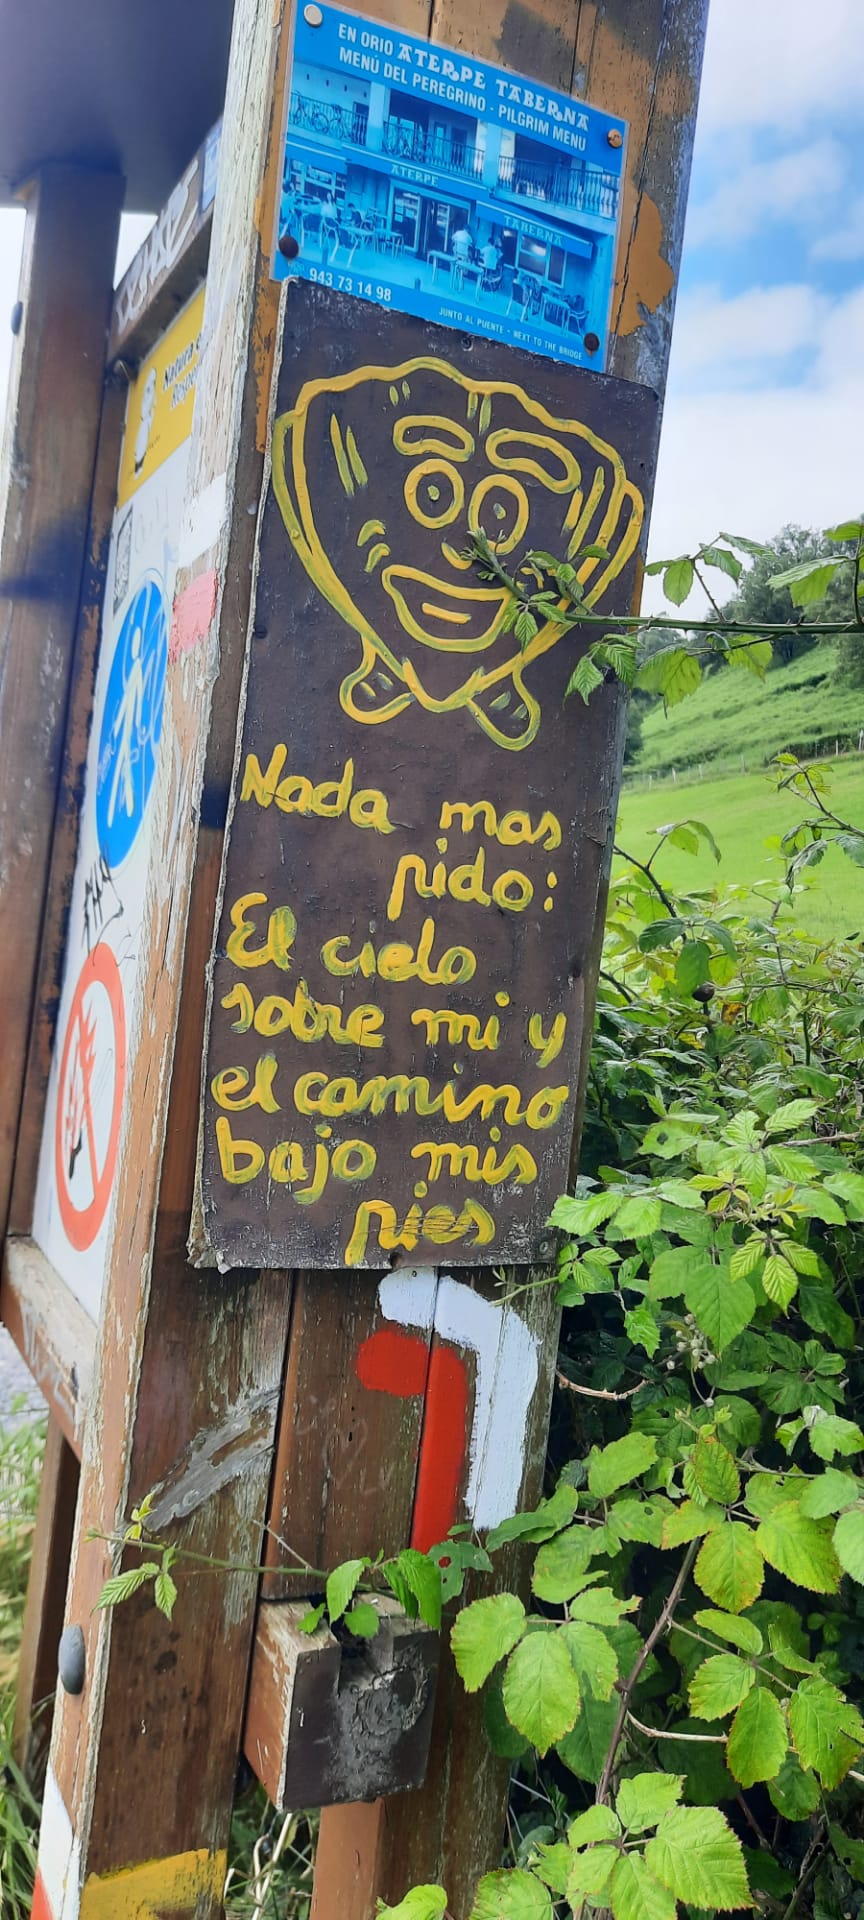 EN ORIO ATERPE TABERNA
MENÚ DEL PEREGRINO - PILGRIM MENU
ATERPE
TABERNA
943 73 14 98
JUNTO AL PUENTE - NEXT TO THE BRIDGE
Natura
Nada mas
pido:
El cielo
sobre mi y
el camino
bajo mis
pies